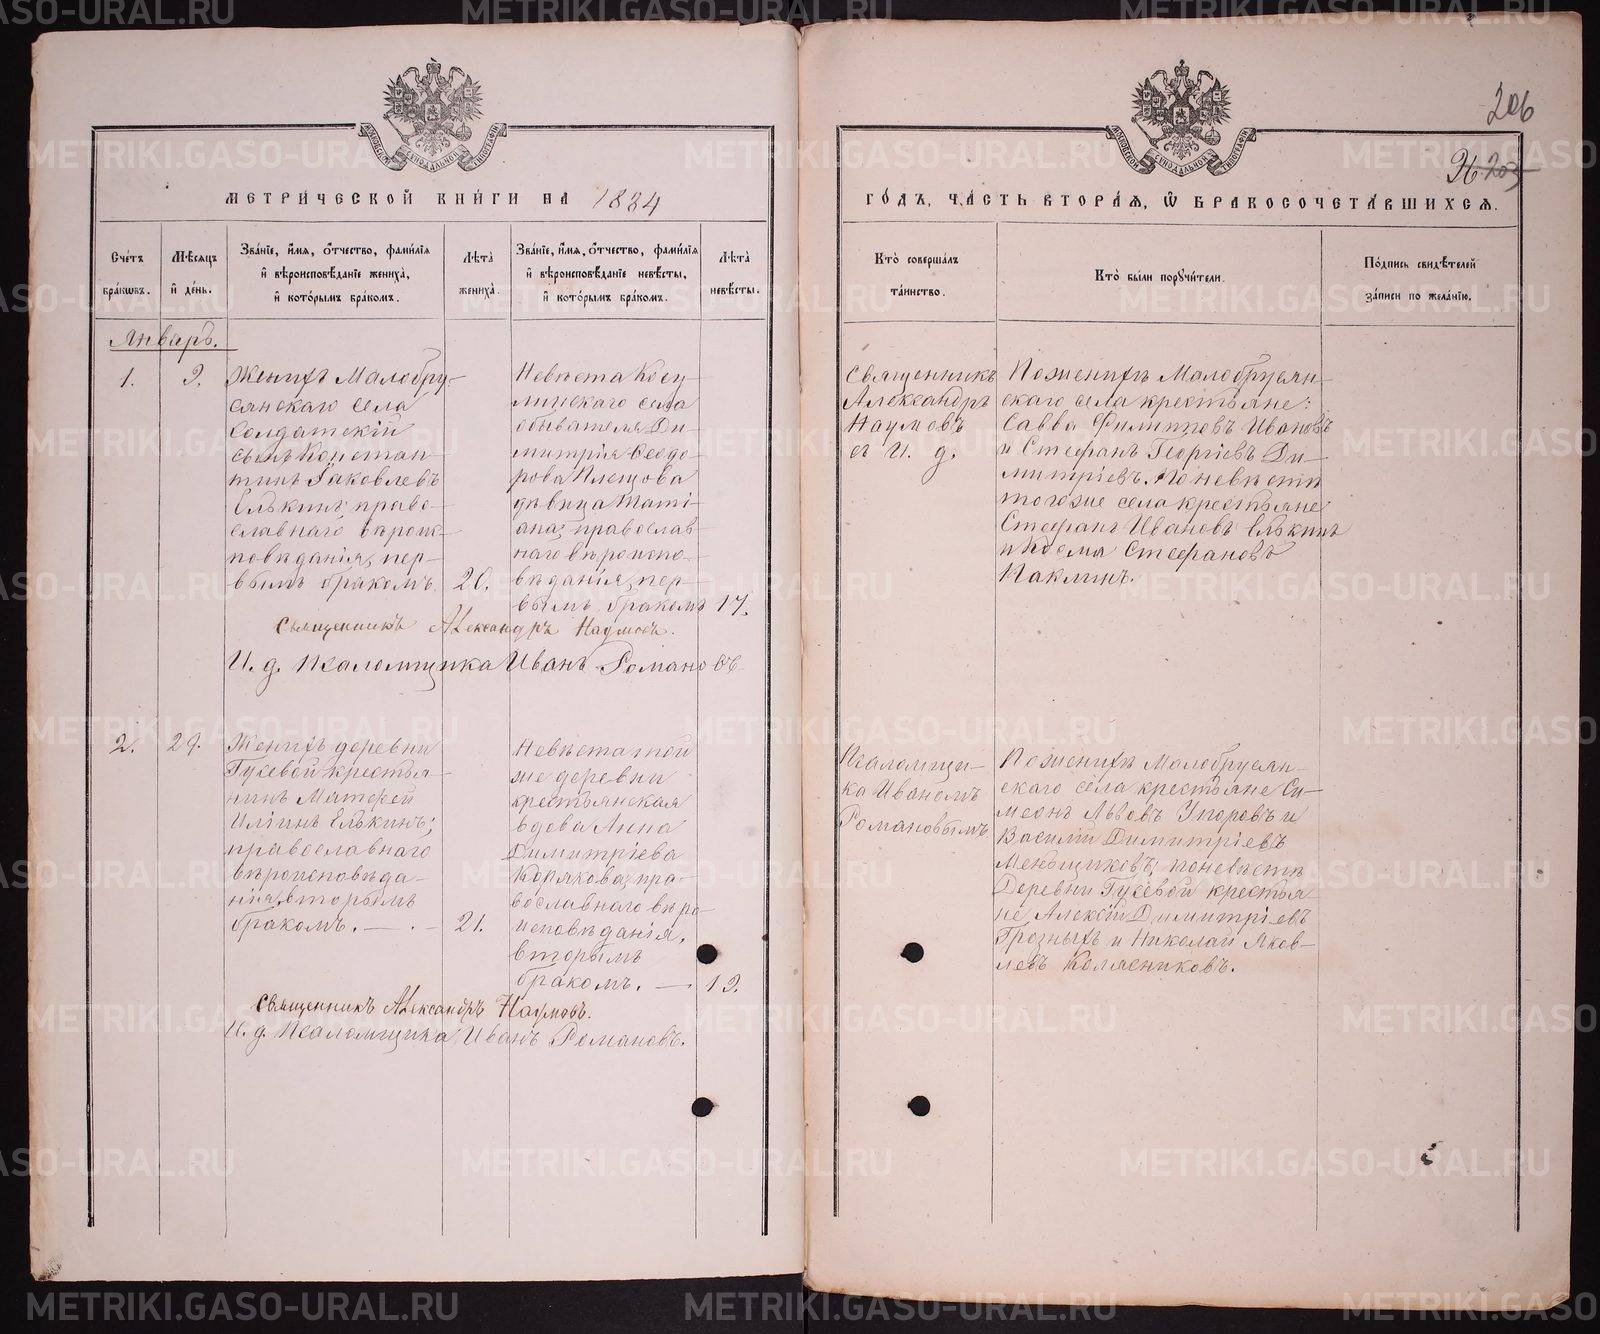 МЕТРИ́ЧЕСКОЙ КНИ́ГИ НА 1884
Сче́тъ
бра́ковъ.
Мѣ́сяцъ
и́ де́нь.
Зва́нїе, и́мя, о́тчество, фами́лїя
и́ вѣроисповѣ́данїе жениха̀,
и́ кото́рымъ бра́комъ.
Лѣ́та
жениха̀.
Зва́нїе, и́мя, о́тчество, фами́лїя
и́ вѣроисповѣ́данїе невѣ́сты,
и́ кото́рымъ бра́комъ.
Лѣ́та
невѣ́сты.
Январь.
1.
9.
Женихъ Малобру-
сянскаго села
солдатскій
сынъ Констан-
тинъ Іаковлевъ
Елькинъ; право-
славнаго вѣроис-
повѣданія, пер-
вымъ бракомъ.
20.
Невѣста Косу-
линскаго села
обывателя Ди-
митрія Ѳеодо-
рова Плещова
дѣвица Таті-
ана; православ-
наго вѣроиспо-
вѣданія, пер-
вымъ бракомъ
17.
Священникъ Александръ Наумовъ.
И. д. Псаломщика Иванъ Романовъ
2.
29.
Женихъ деревни
Гусевой крестья-
нинъ Матѳей
Иліинъ Елькинъ;
православнаго
вѣроисповѣда-
нія, вторымъ
бракомъ. — . -
21.
Невѣста той
же деревни
крестьянская
вдова Анна
Димитріева
Корякова; пра-
вославнаго вѣро-
исповѣданія,
вторымъ
бракомъ. —
19.
Священникъ Александръ Наумовъ.
И. д. Псаломщика Иванъ Романовъ.
206
96 203
ГО́ДЪ, ЧА́СТЬ ВТОРА́Я, Ѡ БРАКОСОЧЕТА́ВШИХСЯ.
Кто̀ соверша́лъ
та́инство.
Кто̀ бы́ли поручи́тели.
По́дпись свидѣ́телей
за́писи по жела́нїю.
Священникъ
Александръ
Наумовъ
съ И. д.
По женихѣ Малобрусян-
скаго села крестьяне:
Савва Филипповъ Ивановъ
и Стефанъ Георгіевъ Ди-
митріевъ. По невѣстѣ
тогоже села крестьяне
Стефанъ Ивановъ Елькинъ
и Косма Стефановъ
Паклинъ.
Псаломщи-
ка Иваномъ
Романовымъ
По женихѣ Малобрусян-
скаго села крестьяне Си-
меонъ Львовъ Упоровъ и
Василій Димитріевъ
Меньщиковъ; по невѣстѣ
Деревни Гусевой крестья-
не Алексій Димитріевъ
Грозныхъ и Николай Яков-
левъ Колясниковъ.